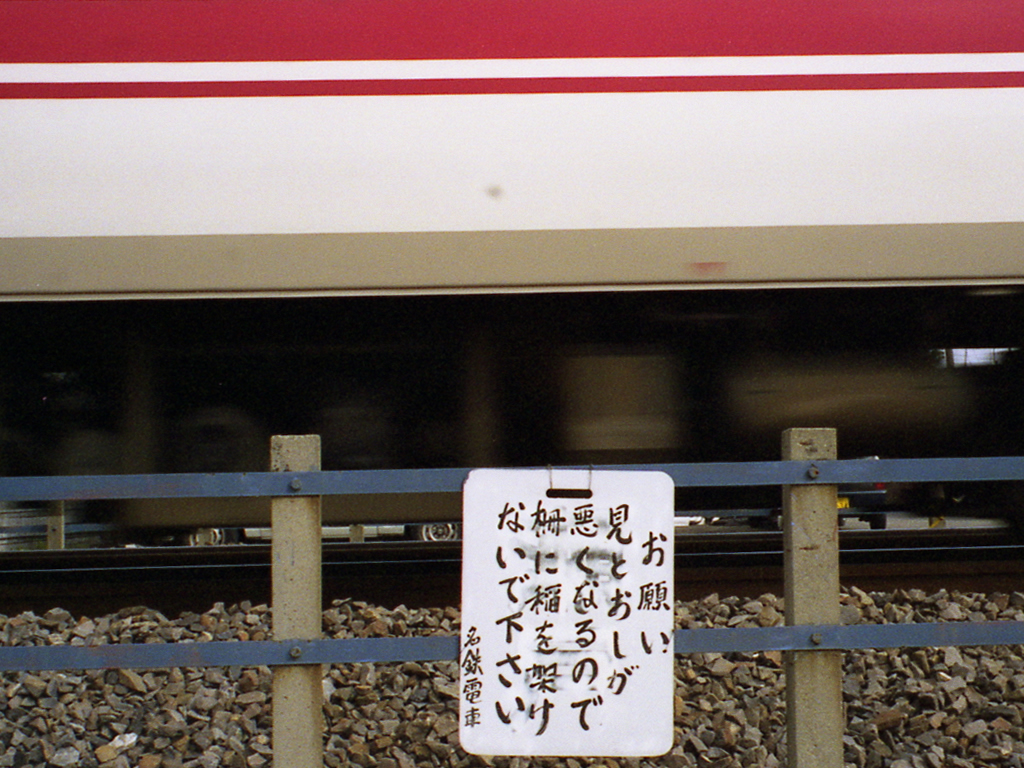 お願い
見とおしが
悪くなるので
柵に稲を架け
ないで下さい
名鉄電車